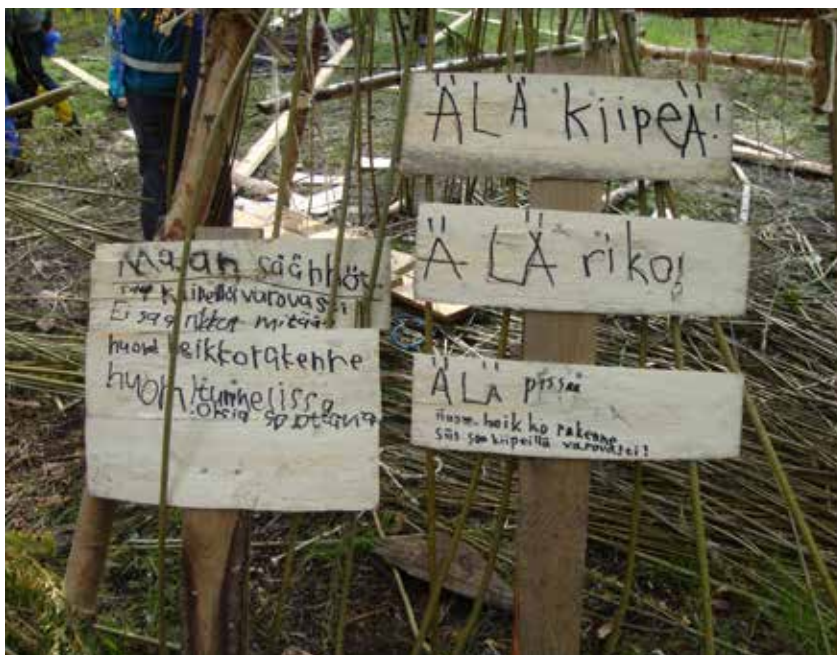 Majan säännöt
saa kiipeillä varovasti
Ei saa rikkoa mitään
huom heikko rakenne
huom tunnelissa
ÄLÄ kiipeä!
ÄLÄ riko!
ÄLÄ pissaa
Huom. heikko rakenne
siis saa kiipeillä varovasti!